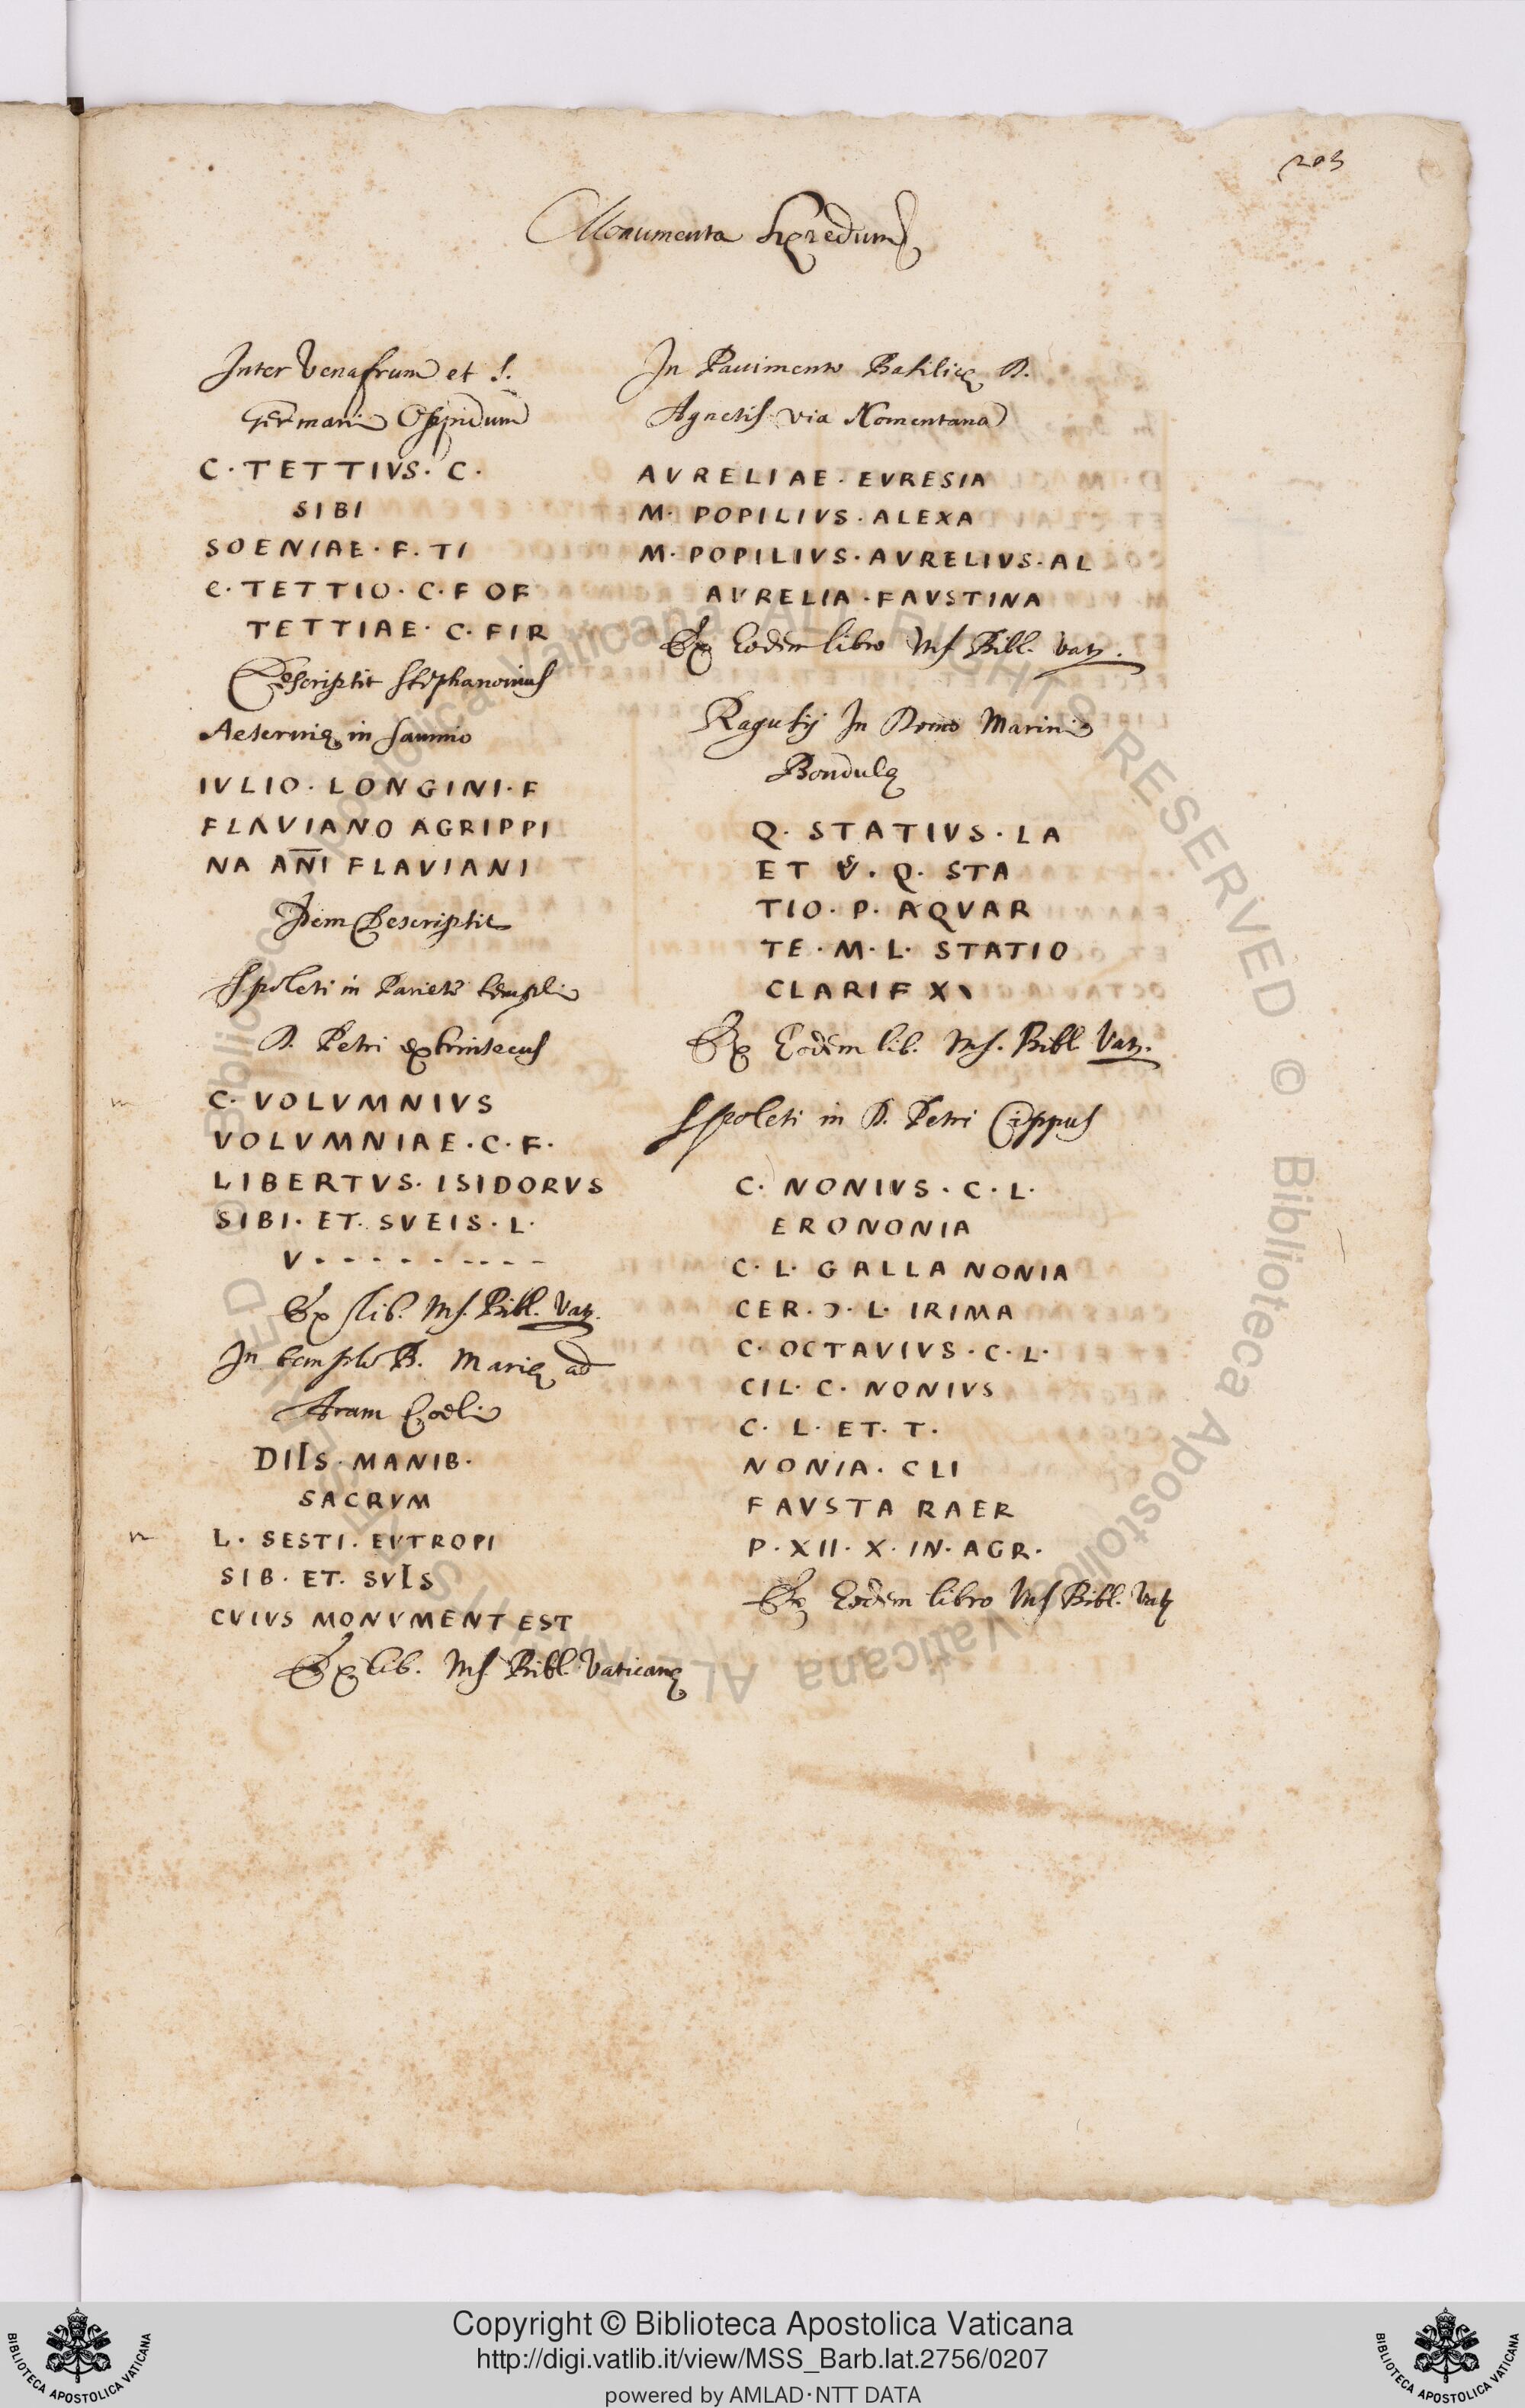 203
Monumenta Hęredum
Inter Venafrum et S.
Germani Oppidum
C · TETTIVS · C ·
SIBI
SOENIAE · F · TI
C · TETTIO · C · F OF
TETTIAE · C · FIR
Descriptit Stephanonius
Aesernię in Samnio
IVLIO · LONGINI · F
FLAVIANO AGRIPPI
NA AÑI FLAVIANI
Idem Descriptit
Spoleti in Pariete templi
D. Petri extrinsecus
C · VOLVMNIVS
VOLVMNIAE · C · F ·
LIBERTVS · ISIDORVS
SIBI · ET · SVEIS · L ·
V · - - - - - - - - -
Ex lib. Ms. Bibl. Vat.
In templo B. Marię ad
Aram Coeli
DIIS · MANIB ·
SACRVM
L · SESTI · EVTROPI
SIB · ET · SVIS
CVIVS MONVMENT EST
Ex lib. Ms. Bibl. Vaticanę
In Pauimento Basilicę D.
Agnetis via Nomentana
AVRELIAE · EVRESIA
M · POPILIVS · ALEXA
M · POPILIVS · AVRELIVS · AL
AVRELIA · FAVSTINA
Ex Eodem libro Ms Bibl. Vat.
Ragusij In Domo Marini
Bondulę
Q · STATIVS · LA
ET · Q · STA
TIO · P · AQVAR
TE · M · L · STATIO
CLARIF X
Ex Eodem lib. Ms. Bibl. Vat.
Spoleti in D. Petri Cippus
C · NONIVS · C · L ·
ERONONIA
C · L · GALLA NONIA
CER · Ɔ · L · IRIMA
C · OCTAVIVS · C · L ·
CIL · C · NONIVS
C · L · ET · T ·
NONIA · CLI
FAVSTA RAER
P · XII · X · IN · AGR ·
Ex Eodem libro Ms Bibl. Vat
Copyright © Biblioteca Apostolica Vaticana
http://digi.vatlib.it/view/MSS_Barb.lat.2756/0207
powered by AMLAD·NTT DATA
BIBLIOTECA APOSTOLICA VATICANA
BIBLIOTECA APOSTOLICA VATICANA